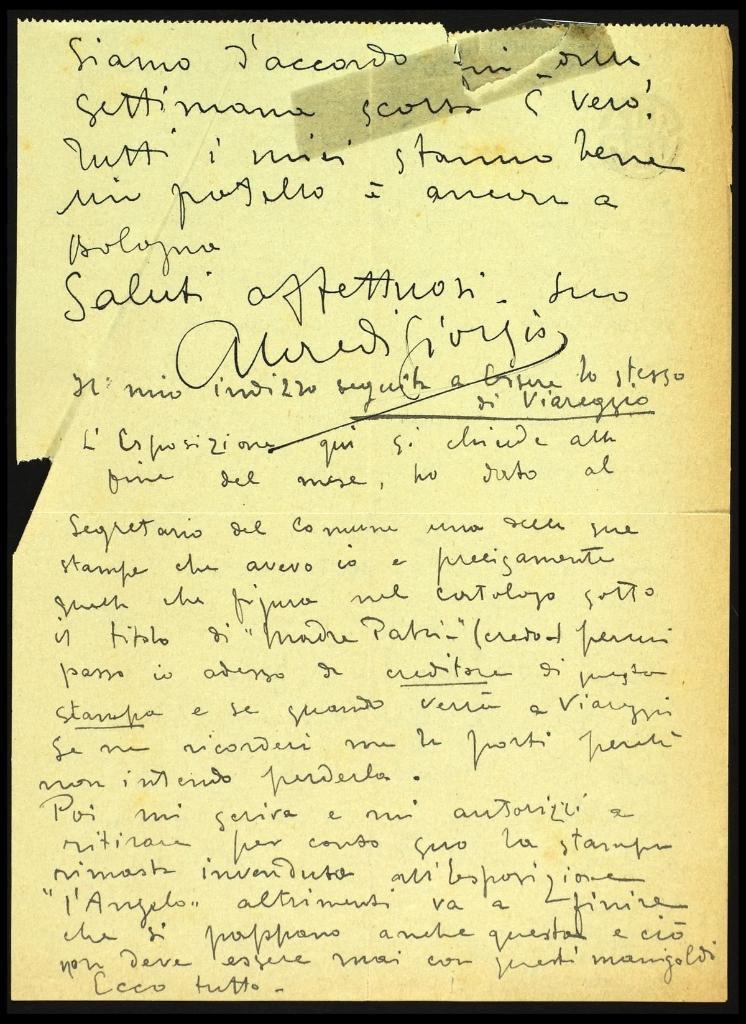 Siamo d'accordo
settimana scorsa è vero?
Tutti i miei stanno bene
mio fratello è ancora a
Bologna
Saluti affettuosi. Suo
Alfredi Giorgio
Il mio indizzo seguita a essere lo stesso
di Viareggio
L'Esposizione qui si chiude alla
fine del mese, ho dato al
Segretario del Comune una delle sue
stampe che avevo io e precisamente
quella che figura nel catalogo sotto
il titolo di "Madre Patria" (credo)
passo io adesso da creditore di questa
stampa e se quando verrà a Viareggio
se ne ricorderà me la porti perché
non intendo perderla.
Poi mi scriva e mi autorizzi a
ritirare per conto suo la stampa
rimasta invenduta all'Esposizione
"l'Angelo" altrimenti va a finire
che si pappano anche questa e ciò
non deve essere mai con questi manigoldi
Ecco tutto.